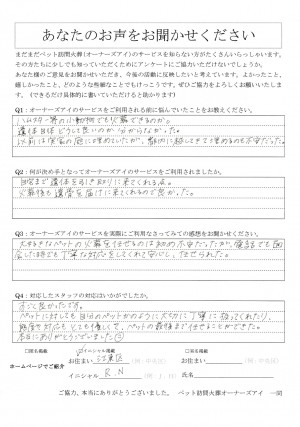 あなたのお声をお聞かせください
まだまだペット訪問火葬（オーナーズアイ）のサービスを知らない方がたくさんいらっしゃいます。
その方たちに少しでも知っていただくためにアンケートにご協力いただけないでしょうか。
あなた様のご意見をお聞かせいただき、今後の活動に反映したいと考えています。よかったこと、
嬉しかったこと、どのような些細なことでもけっこうです。ぜひご協力をよろしくお願いいたしま
す。（できるだけ具体的に書いていただけると助かります）
Q1：オーナーズアイのサービスをご利用される前に悩んでいたことをお教えください。
ハムスター等の小動物でも火葬できるのか。
遺体自体どうして良いのか分からなかった。
以前は実家の庭に埋めていたが、都内に越してきて埋めるのも不安だった。
Q2：何が決め手となってオーナーズアイのサービスをご利用されましたか。
自宅まで遺体を引き取りに来てくれる点。
火葬後も遺骨を届けに来てくれるのが。
Q3：オーナーズアイのサービスを実際にご利用なさってみての感想をお聞かせください。
大好きなペットの火葬を任せるのは初め不安だったが、電話でも面
会した時でも丁寧な対応をしてくれて安心し、任せられた。
Q4：対応したスタッフの対応はいかがでしたか。
すごく良かったです。
ペットに対しても自分のペットかのように大切に丁寧に扱ってくれたり、
態度や対応もとても優しくて、ペットの最後まで任せることができた。
本当にありがとうございました
□匿名掲載
☑イニシャル掲載
□実名掲載
お住まい 江東区 （例・中央区）
お住まい （例・中央区）
ホームページでご紹介
イニシャル R.N （例：J．H）
氏名
ご協力、本当にありがとうございました。 ペット訪問火葬オーナーズアイ 一同